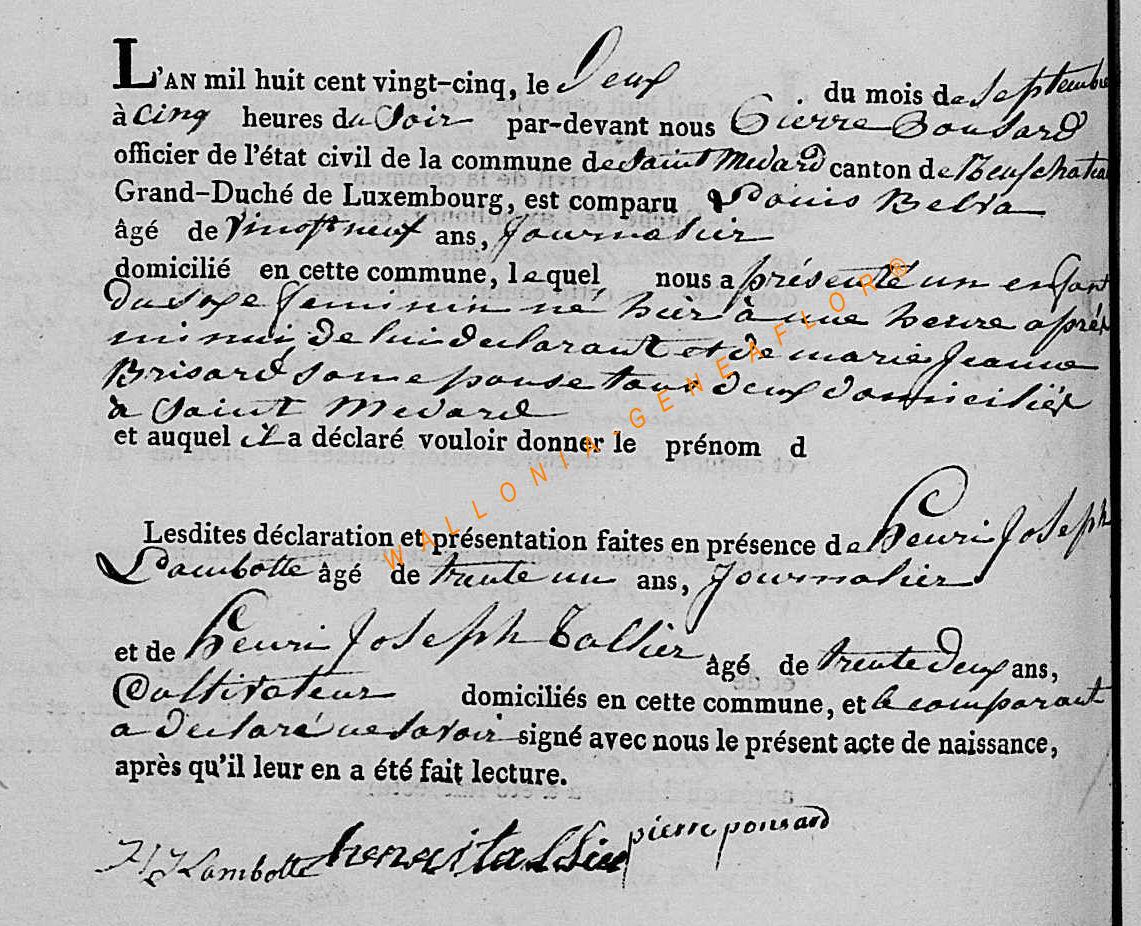 L'AN mil huit cent vingt-cinq, le Deux du mois de Septembre
à cinq heures du Soir par-devant nous Pierre Ponsard
officier de l'état civil de la commune de Saint Medard canton de Neufchateau
Grand-Duché de Luxembourg, est comparu Louis Belva
âgé de vingt neuf ans, Journalier
domicilié en cette commune, lequel nous a présenté un enfant
du sexe feminin né hier à une heure après
minui de lui declarant et de marie Jeanne
Brisard son epouse tous deux domiciliés
à Saint Medard
et auquel il a déclaré vouloir donner le prénom d
Lesdites déclaration et présentation faites en présence de Henri Joseph
Lambotte âgé de trente un ans, Journalier
et de Henri Joseph Tallier âgé de trente deux ans,
Cultivateur domiciliés en cette commune, et le comparant
a declaré ne savoir signé avec nous le présent acte de naissance,
après qu'il leur en a été fait lecture.
HJ Lambotte henri pierre ponsard
WALLONIA-GENEAFLOR®